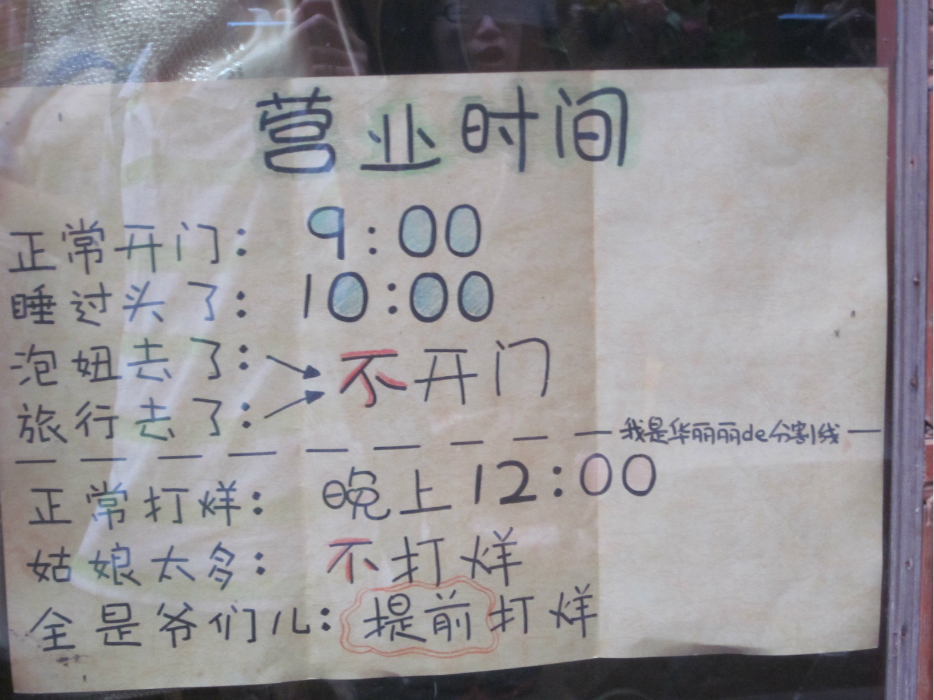 营业时间
正常开门: 9:00
睡过头了: 10:00
泡妞去了: 不开门
旅行去了:
我是华丽丽de分割线
正常打烊: 晚上12:00
姑娘太多: 不打烊
全是爷们儿: 提前打烊